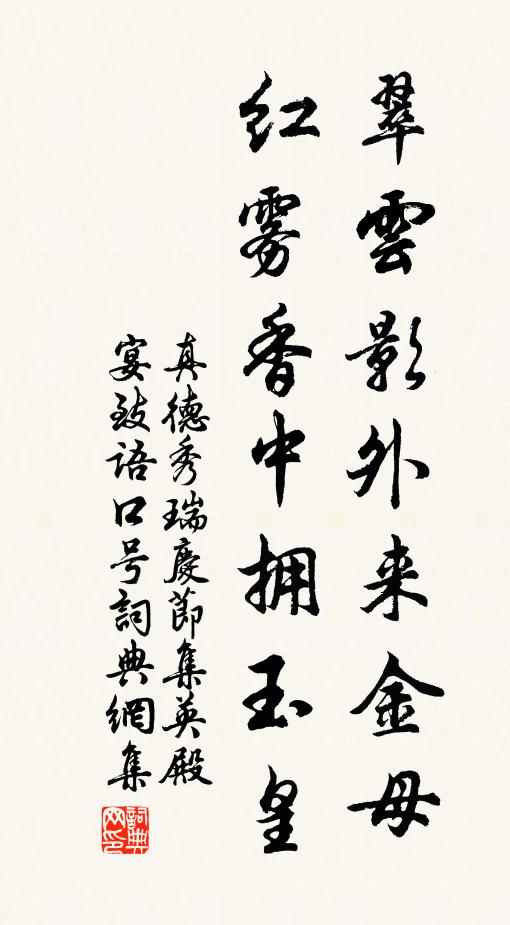 翠雲影外来金母
紅雾香中拥玉皇
真德秀瑞慶節集英殿
宴致語口号詞典網集
詞典
网印